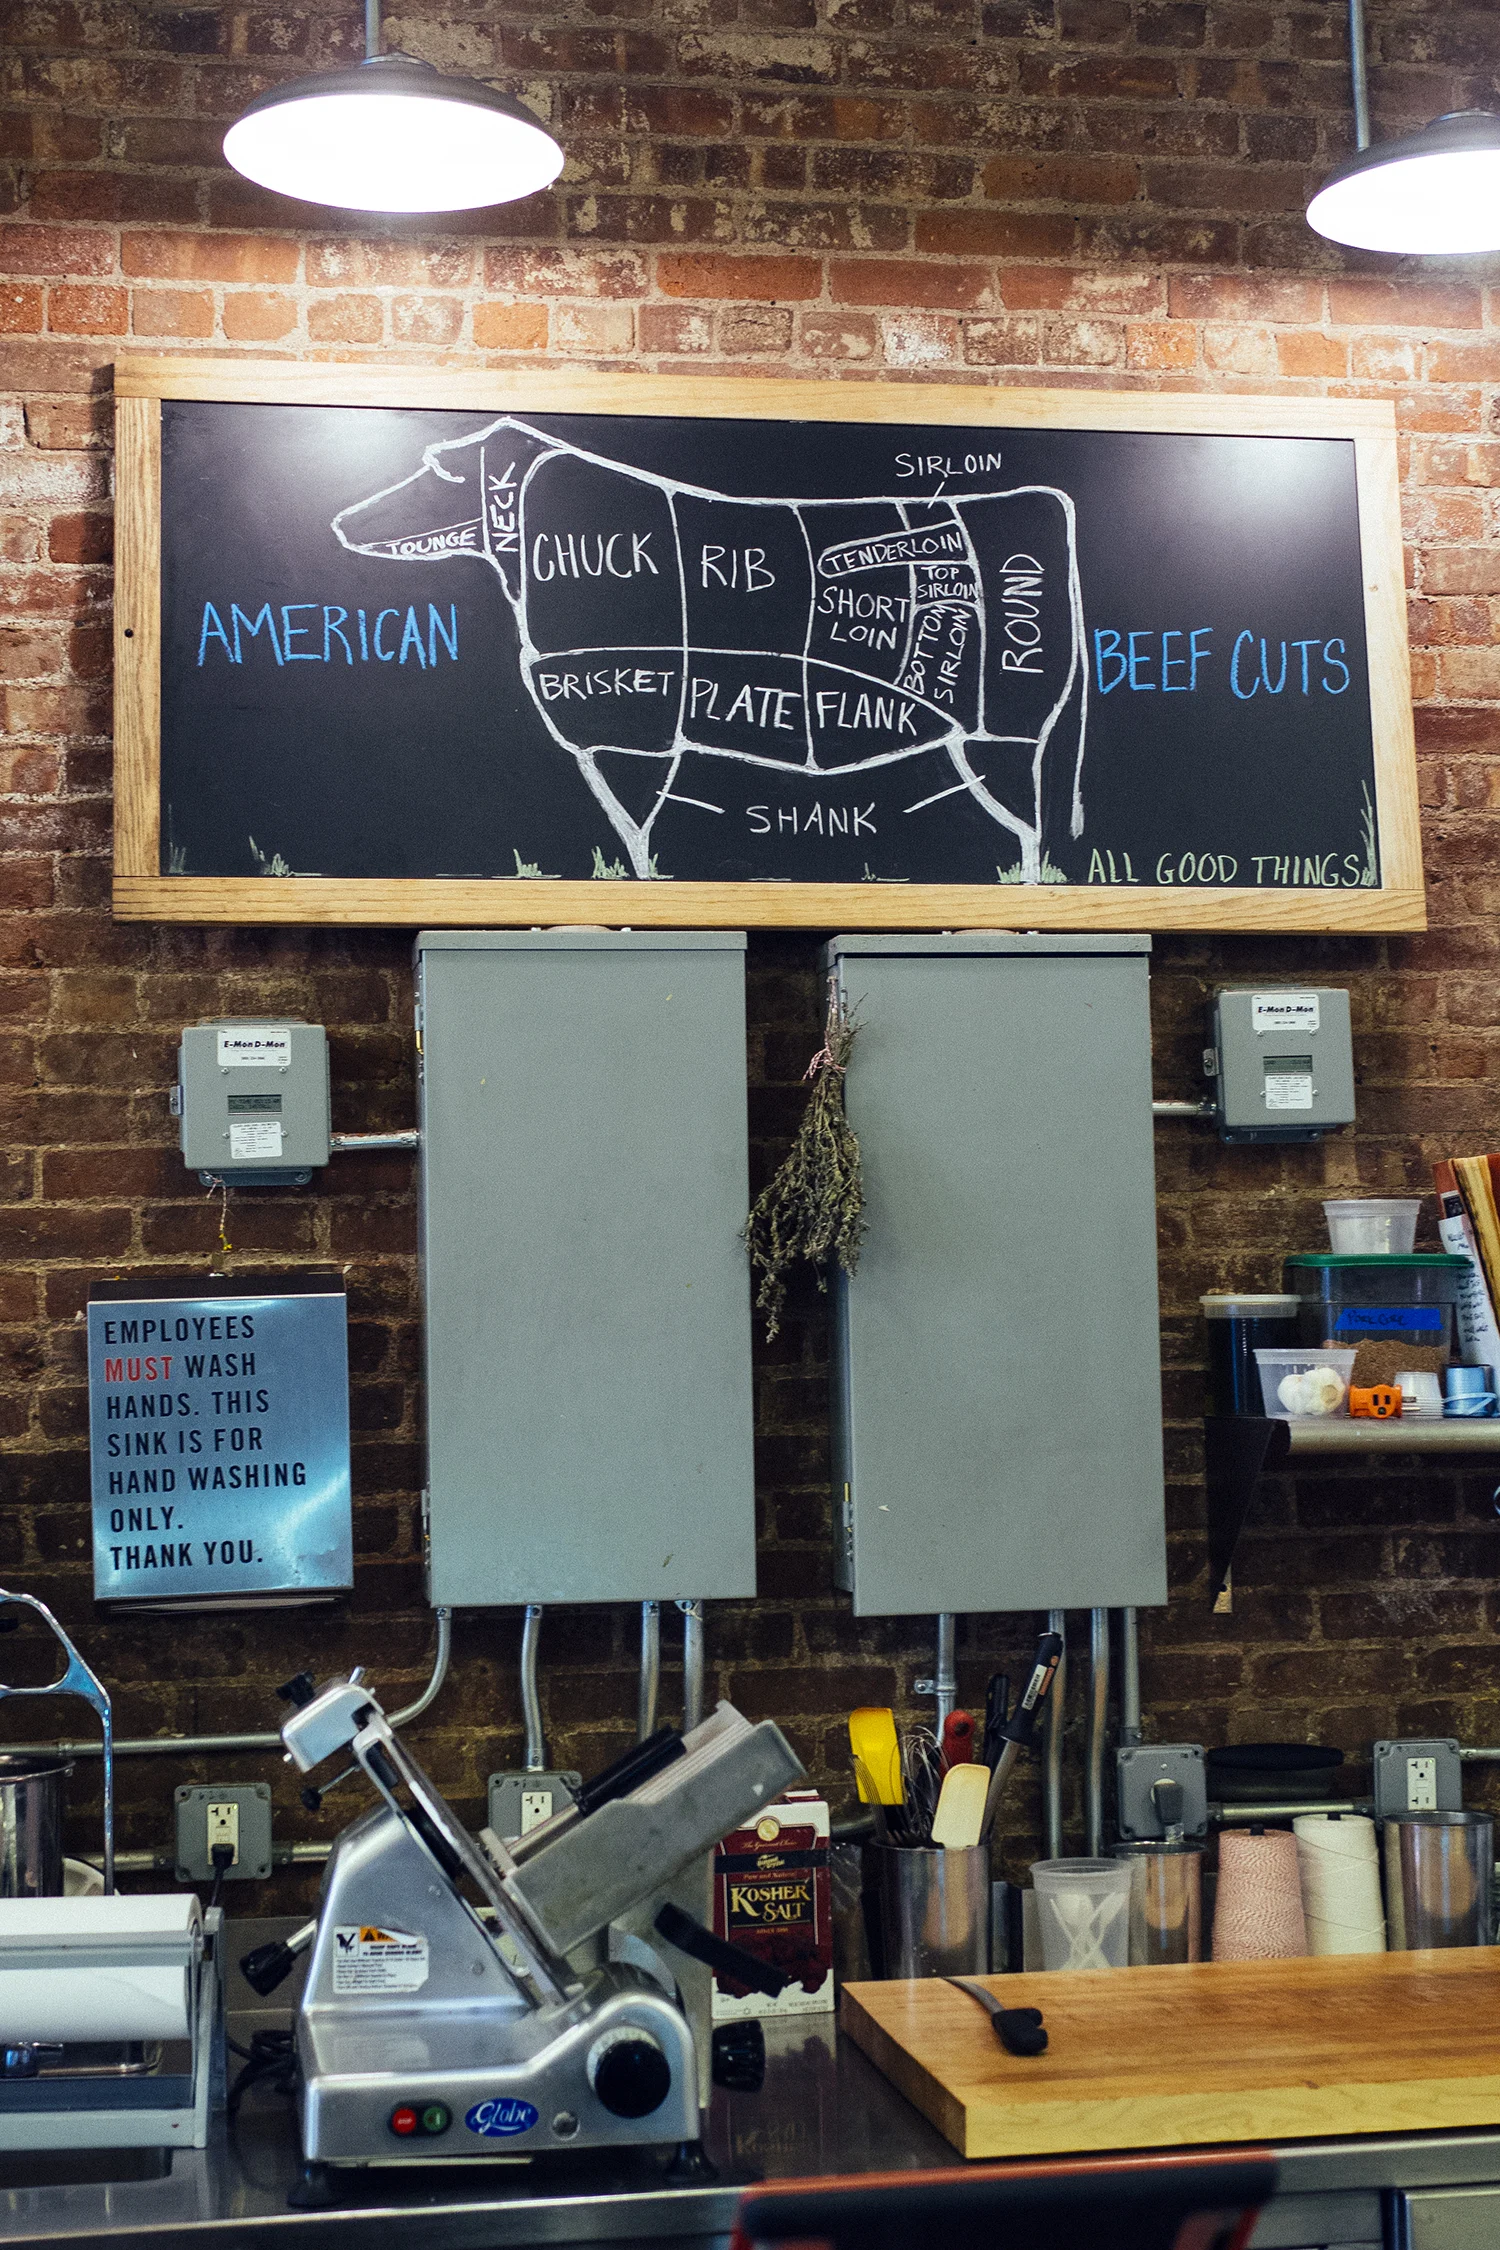 SIRLOIN
NECK
TOUNGE
CHUCK
RIB
TENDERLOIN
SHORT
LOIN
TOP
SIRLOIN
BOTTOM
SIRLOIN
ROUND
AMERICAN
BEEF CUTS
BRISKET
PLATE
FLANK
SHANK
ALL GOOD THINGS
E-Mon D-Mon
E-Mon D-Mon
EMPLOYEES
MUST WASH
HANDS. THIS
SINK IS FOR
HAND WASHING
ONLY.
THANK YOU.
KOSHER
SALT
Globe